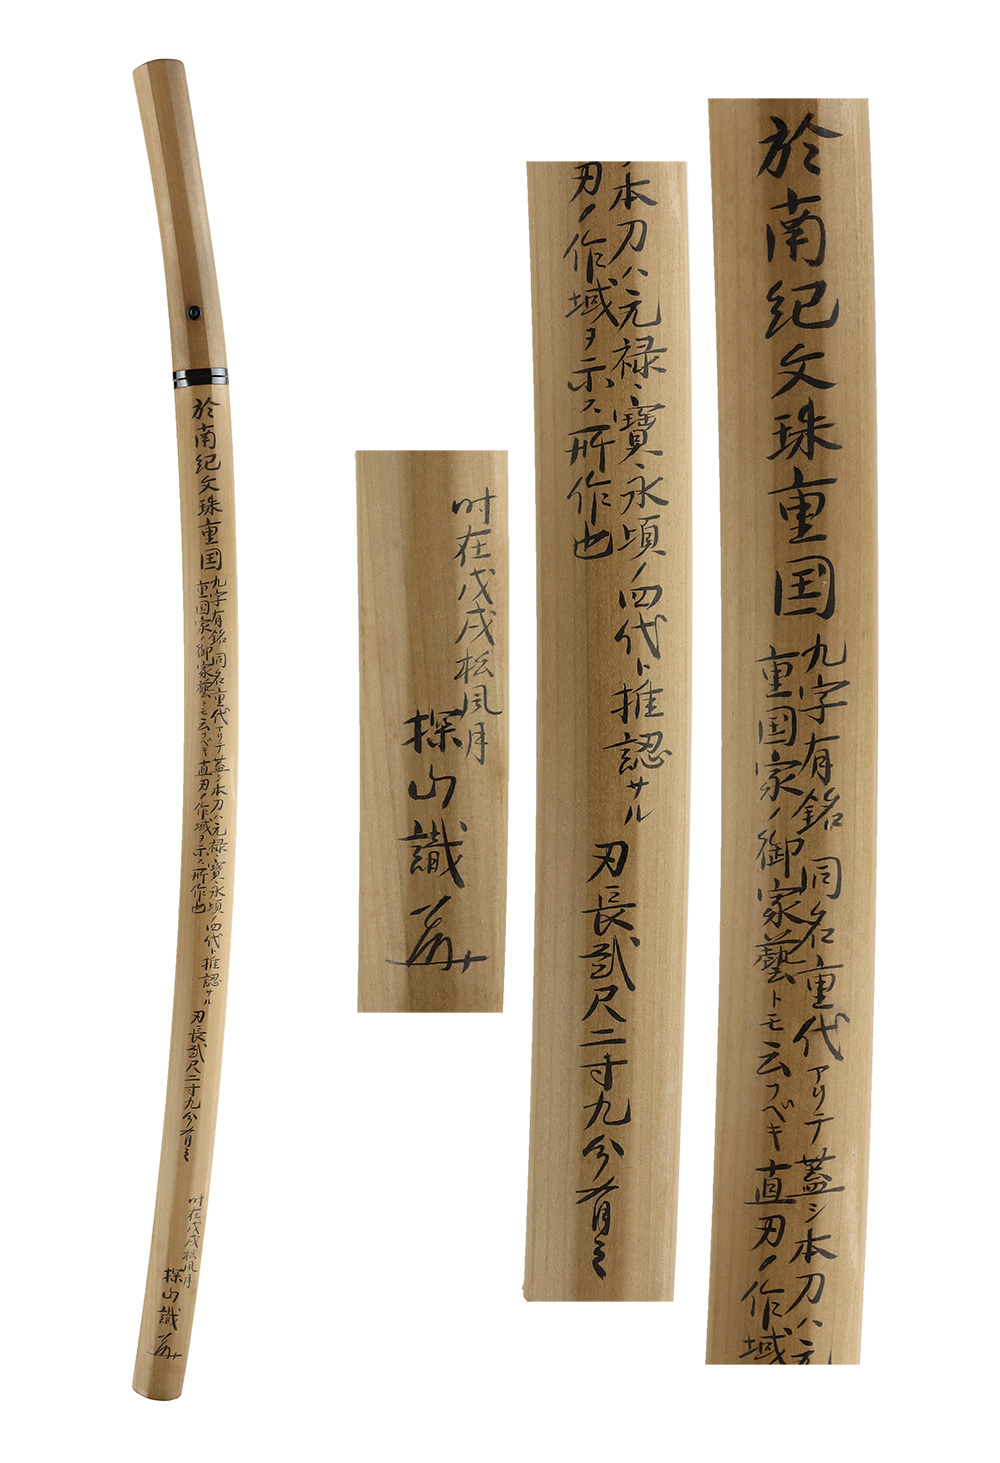 於南紀文珠重国
九字有銘 同名重代アリテ蓋シ本刀ハ元
重国家ノ御家藝トモ云フベキ直刃ノ作域
本刀ハ元禄、寶永頃ノ四代ト推認サル
刃ノ作域ヲ示ス所作也
刃長弐尺二寸九分有之
时在戊戌松風月
探山識
於南紀文珠重国
九字有銘 同名重代アリテ蓋シ本刀ハ元禄、寶永頃ノ四代ト推認サル
重国家ノ御家藝トモ云フベキ直刃ノ作域ヲ示ス所作也
刃長弐尺二寸九分有之
时在戊戌松風月
探山識